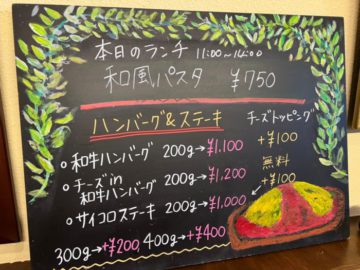 本日のランチ 11:00～14:00
和風パスタ ¥750
ハンバーグ&ステーキ
チーズトッピング
+¥100
○和牛ハンバーグ 200g→¥1,100
+¥100
無料
○チーズin
和牛ハンバーグ 200g→¥1,200
+¥100
○サイコロステーキ 200g→¥1,000
300g→+¥200, 400g→+¥400